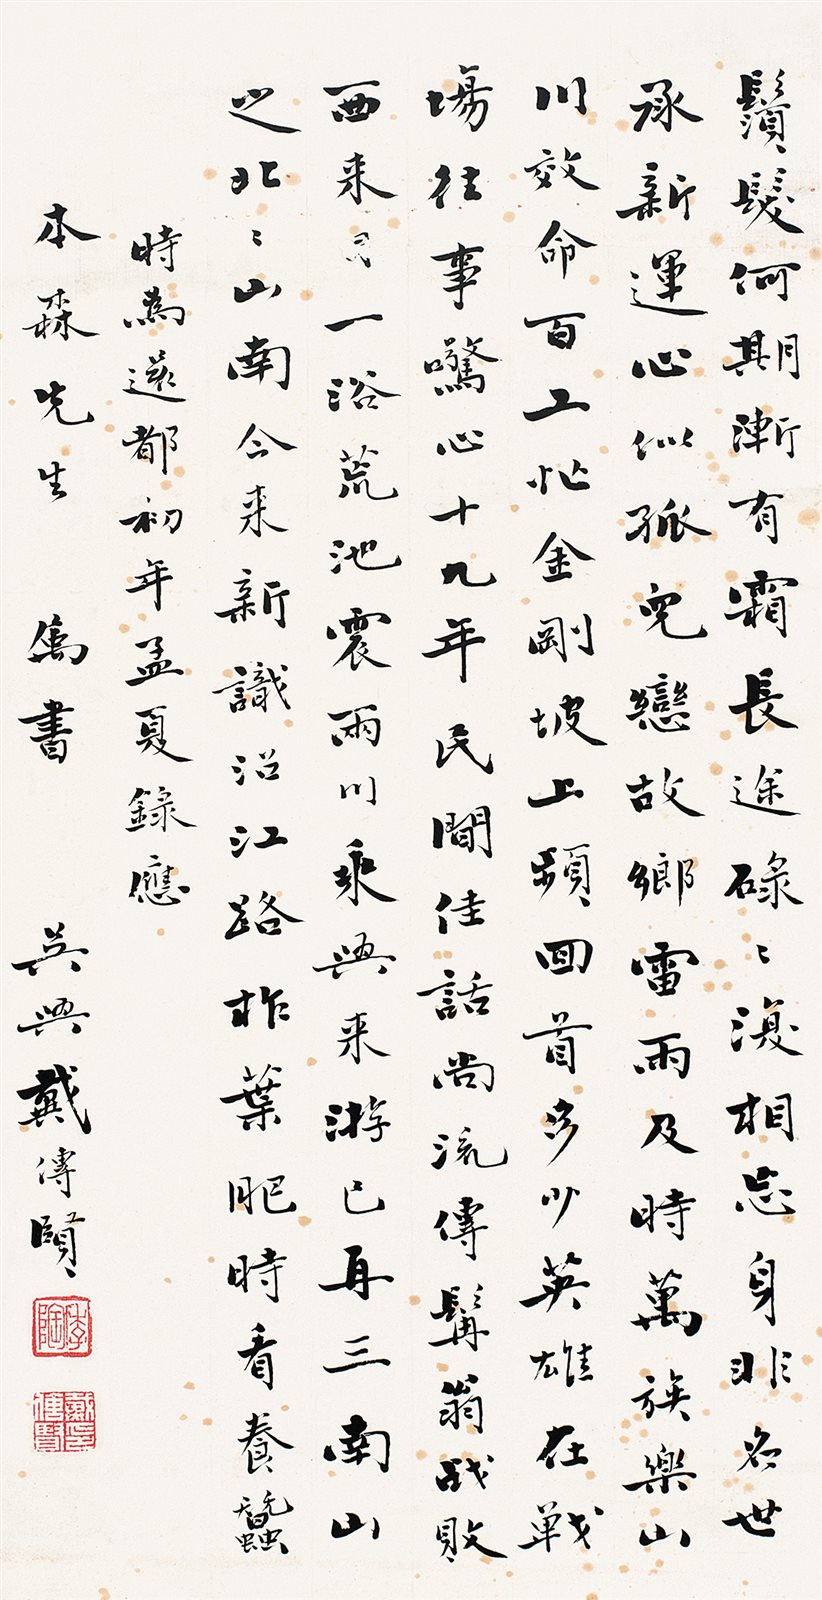 鬚髮何期漸有霜長途碌〻復相忘身非名世
承新運心似孤兒戀故鄉雷雨及時萬族樂山
川效命百工忙金剛坡上頻回首多少英雄在戰
場往事驚心十九年民間佳話尚流傳髯翁戰敗
西来日一浴荒池震兩川乘興来游已再三南山
之北〻山南今来新識沿江路柞葉肥時看養蠶
時為遷都初年孟夏錄應
本森先生 属書 吳興戴傳賢
季陶
戴印傳賢